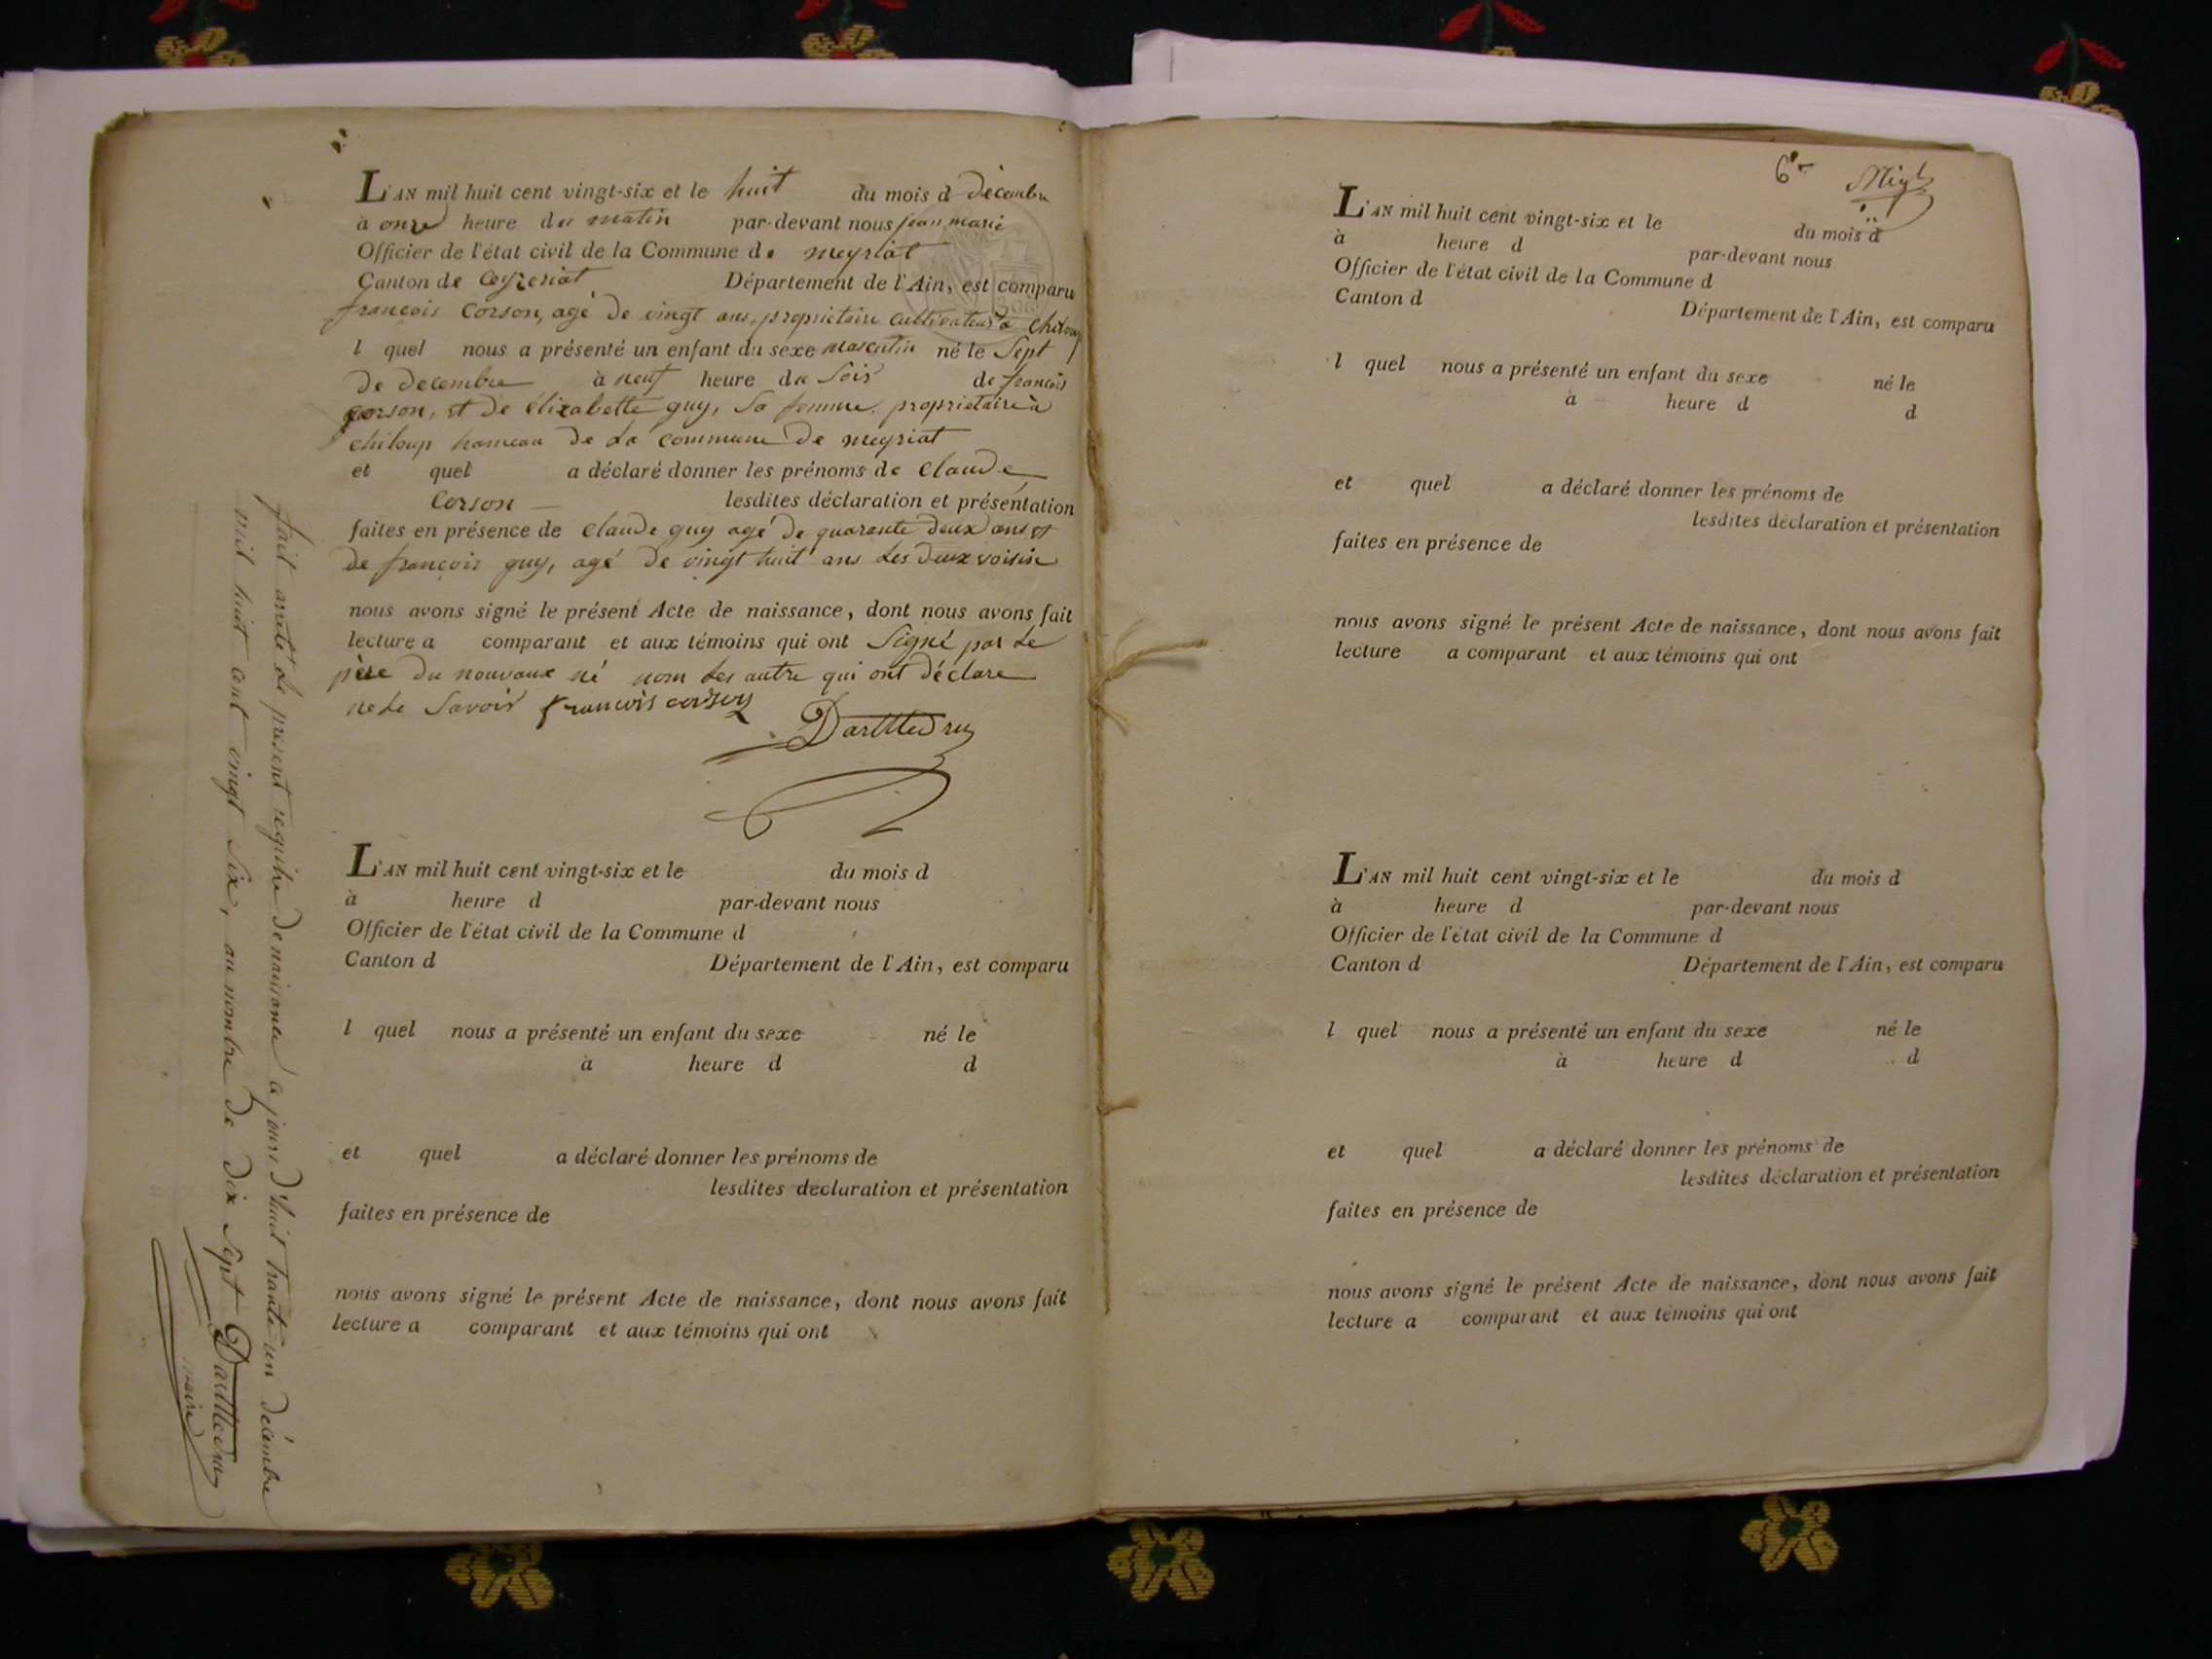 L'AN mil huit cent vingt-six et le huit du mois d décembre
à onze heure du matin par-devant nous jean marie
Officier de l'état civil de la Commune de meyriat
Canton de Ceyzeriat Département de l'Ain, est comparu
françois Corson, agé de vingt ans, proprietaire cultivateur a chiloup
l quel nous a présenté un enfant du sexe masculin né le Sept
de decembre à neuf heure du Soir de françois
Corson, et de élizabette guy, Sa femme proprietaire à
chiloup hameau de La commune De meyriat
et quel a déclaré donner les prénoms de claude
Corson lesdites déclaration et présentation
faites en présence de claude guy agé de quarante deux ans et
de françois guy, agé De vingt huit ans Les deux voisin
nous avons signé le présent Acte de naissance, dont nous avons fait
lecture a comparant et aux témoins qui ont Signé par Le
père du nouvaux né nom Les autre qui ont déclare
ne Le Savoir francois corson
L'AN mil huit cent vingt-six et le du mois d
à heure d par-devant nous
Officier de l'état civil de la Commune d
Canton d Département de l'Ain, est comparu
l quel nous a présenté un enfant du sexe né le
à heure d d
et quel a déclaré donner les prénoms de
lesdites declaration et présentation
faites en présence de
nous avons signé le présent Acte de naissance, dont nous avons fait
lecture a comparant et aux témoins qui ont
fait arrêté Le present registre De naissance a jourd'huit trante un décembre
mil huit cent vingt Six, au nombre De Dix Sept
maire
6
L'AN mil huit cent vingt-six et le du mois d
à heure d par-devant nous
Officier de l'état civil de la Commune d
Canton d Département de l'Ain, est comparu
l quel nous a présenté un enfant du sexe né le
à heure d d
et quel a déclaré donner les prénoms de
lesdites déclaration et présentation
faites en présence de
nous avons signé le présent Acte de naissance, dont nous avons fait
lecture a comparant et aux témoins qui ont
L'AN mil huit cent vingt-six et le du mois d
à heure d par-devant nous
Officier de l'état civil de la Commune d
Canton d Département de l'Ain, est comparu
l quel nous a présenté un enfant du sexe né le
à heure d d
et quel a déclaré donner les prénoms de
lesdites déclaration et présentation
faites en présence de
nous avons signé le présent Acte de naissance, dont nous avons fait
lecture a comparant et aux témoins qui ont